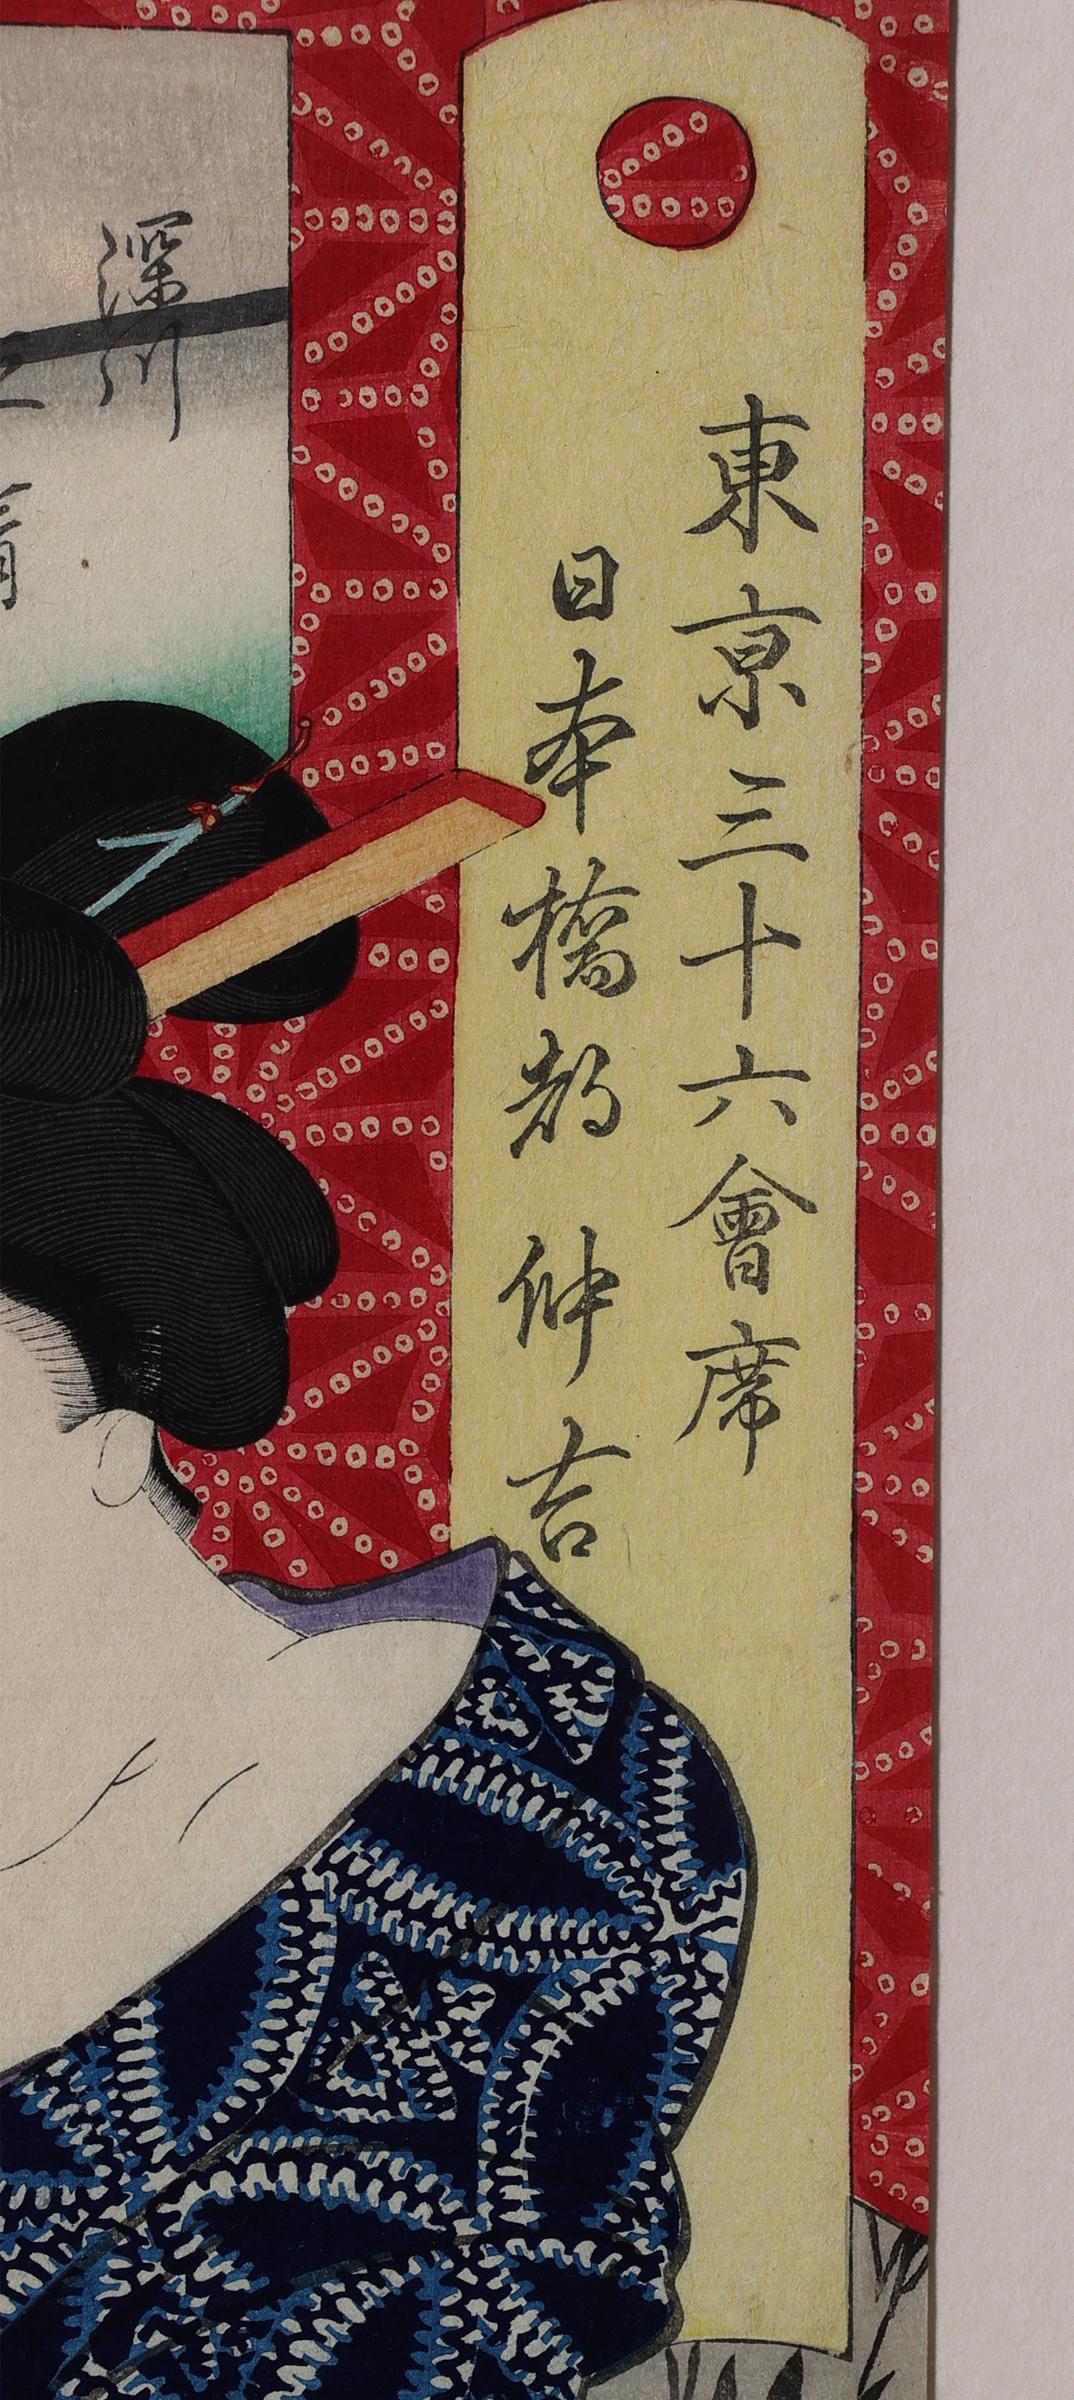 東京三十六會席
日本橋都仲吉
深川